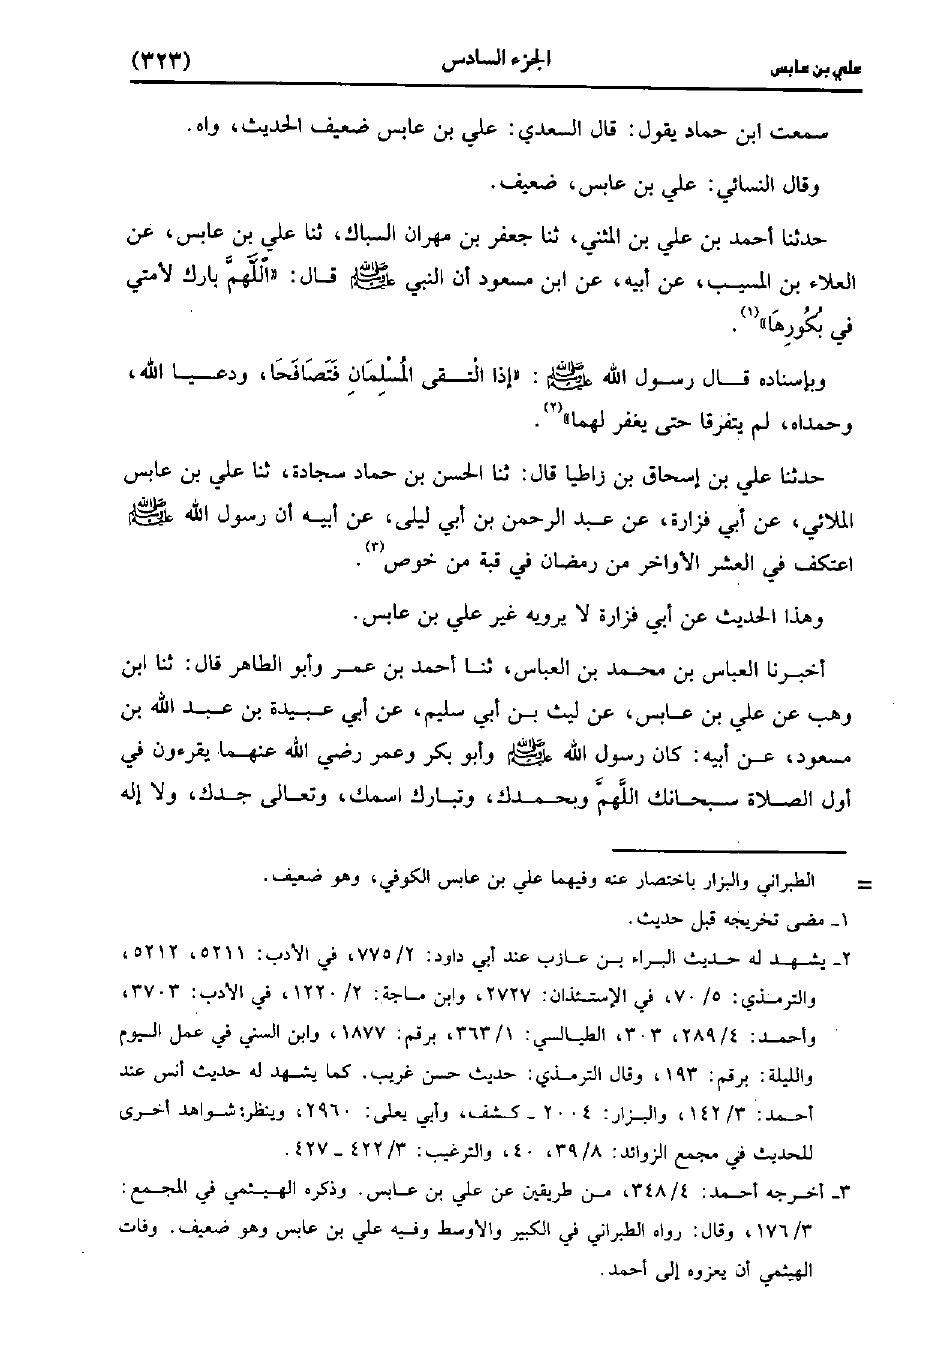 علي بن عابس الجزء السادس (٣٢٣)
سمعت ابن حماد يقول: قال السعدي: علي بن عابس ضعيف الحديث، واه.
وقال النسائي: علي بن عابس، ضعيف.
حدثنا أحمد بن علي بن المثني، ثنا جعفر بن مهران السباك، ثنا علي بن عابس، عن
العلاء بن المسيب، عن أبيه، عن ابن مسعود أن النبي ﷺ قال: «اللَّهمَّ بارك لأمتي
في بُكُورِهَا»(١).
وبإسناده قال رسول الله ﷺ : «إذا الْتقى الْمُسْلِمَانِ فَتَصَافَحَا، ودعيا الله،
وحمداه، لم يتفرقا حتى يغفر لهما»(٢).
حدثنا علي بن إسحاق بن زاطيا قال: ثنا الحسن بن حماد سجادة، ثنا علي بن عابس
الملائي، عن أبي فزارة، عن عبد الرحمن بن أبي ليلى، عن أبيه أن رسول الله ﷺ
اعتكف في العشر الأواخر من رمضان في قبة من خوص(٣).
وهذا الحديث عن أبي فزارة لا يرويه غير علي بن عابس.
أخبرنا العباس بن محمد بن العباس، ثنا أحمد بن عمر وأبو الطاهر قال: ثنا ابن
وهب عن علي بن عابس، عن ليث بن أبي سليم، عن أبي عبيدة بن عبد الله بن
مسعود، عن أبيه: كان رسول الله ﷺ وأبو بكر وعمر رضي الله عنهما يقرءون في
أول الصلاة سبحانك اللَّهمَّ وبحمدك، وتبارك اسمك، وتعالى جدك، ولا إله
= الطبراني والبزار باختصار عنه وفيهما علي بن عابس الكوفي، وهو ضعيف.
١ـ مضى تخريجه قبل حديث.
٢ـ يشهد له حديث البراء بن عازب عند أبي داود: ٢/ ٧٧٥، في الأدب: ٥٢١١، ٥٢١٢،
والترمذي: ٥/ ٧٠، في الإستئذان: ٢٧٢٧، وابن ماجة: ٢/ ١٢٢٠، في الأدب: ٣٧٠٣،
وأحمد: ٤/ ٢٨٩، ٣٠٣، الطيالسي: ١/ ٣٦٣، برقم: ١٨٧٧، وابن السني في عمل اليوم
والليلة: برقم: ١٩٣، وقال الترمذي: حديث حسن غريب. كما يشهد له حديث أنس عند
أحمد: ٣/ ١٤٢، والبزار: ٢٠٠٤ ـ كشف، وأبي يعلى: ٢٩٦٠، وينظر: شواهد أخرى
للحديث في مجمع الزوائد: ٨/ ٣٩، ٤٠، والترغيب: ٣/ ٤٢٢ ـ ٤٢٧.
٣ـ أخرجه أحمد: ٤/ ٣٤٨، من طريقين عن علي بن عابس. وذكره الهيثمي في المجمع:
٣/ ١٧٦، وقال: رواه الطبراني في الكبير والأوسط وفيه علي بن عابس وهو ضعيف. وفات
الهيثمي أن يعزوه إلى أحمد.